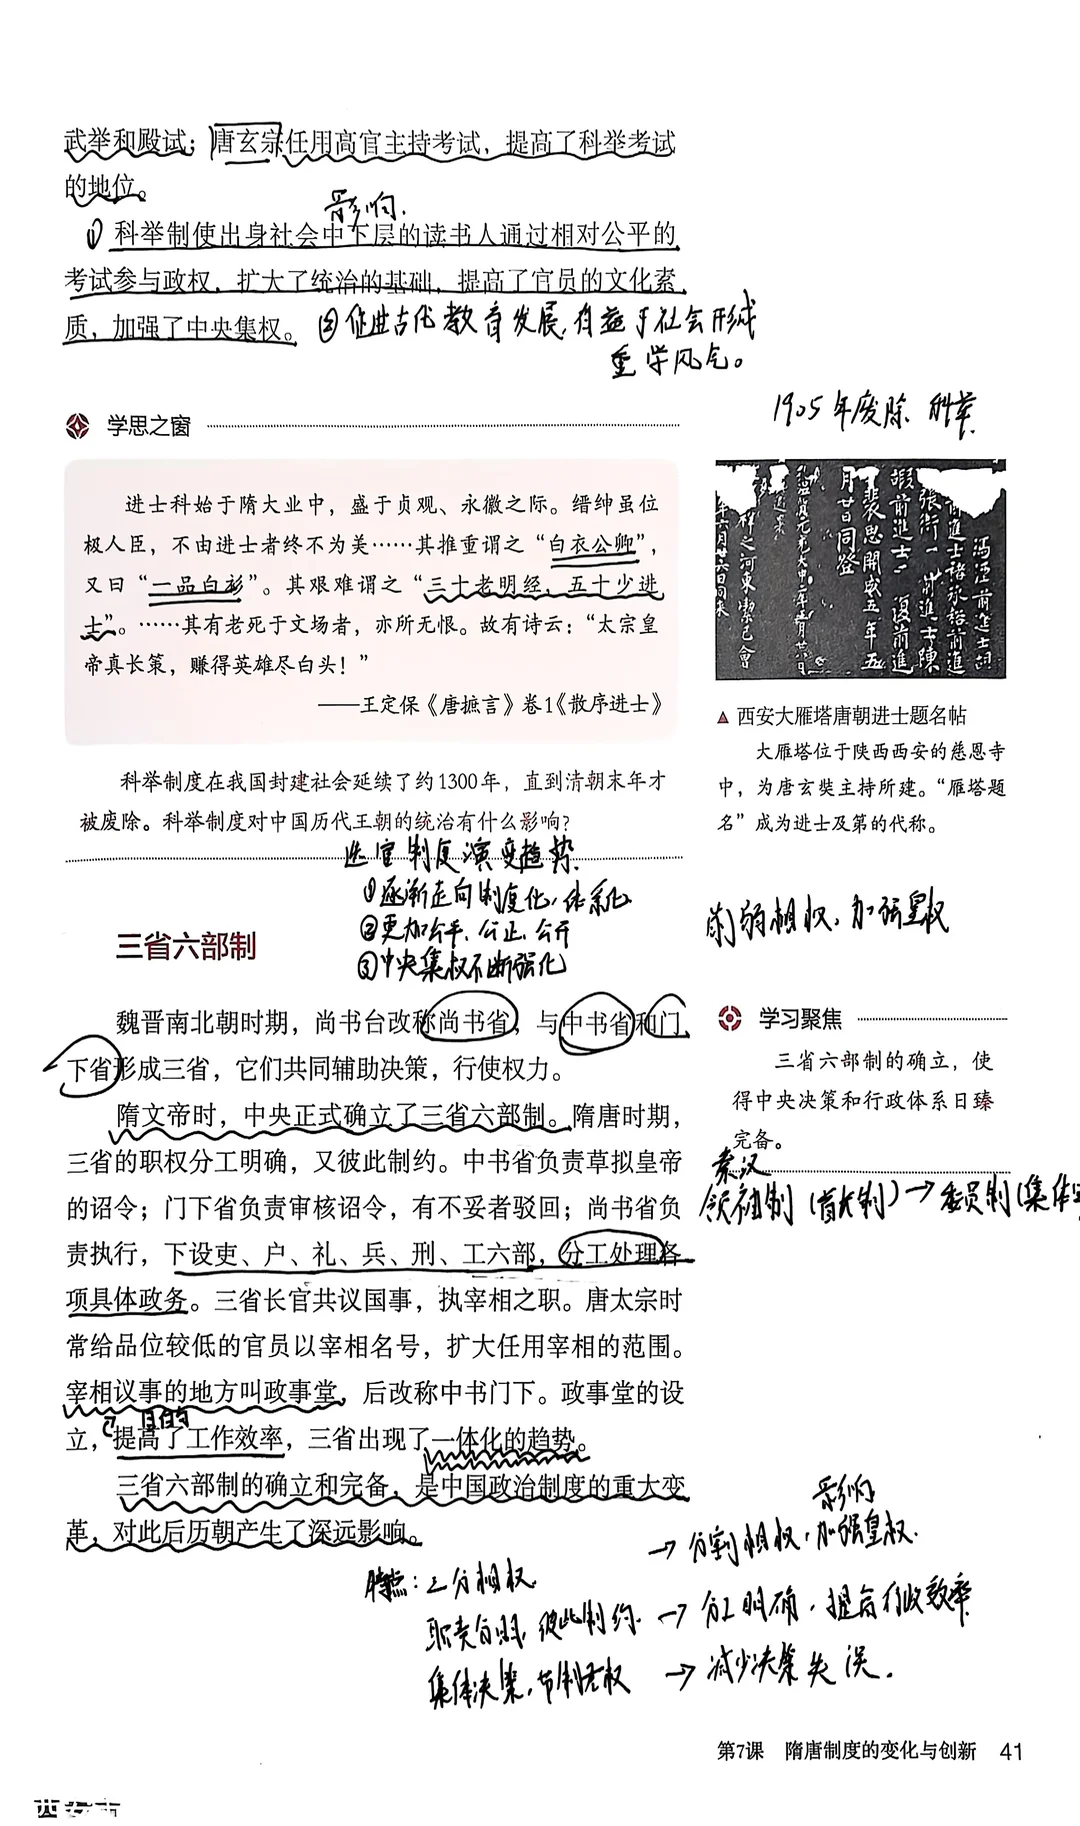 武举和殿试；唐玄宗任用高官主持考试，提高了科举考试
的地位。
影响.
① 科举制使出身社会中下层的读书人通过相对公平的
考试参与政权，扩大了统治的基础，提高了官员的文化素
质，加强了中央集权。
② 促进古代教育发展,有益于社会形成
重学风气。
1905年废除 科举.
学思之窗
进士科始于隋大业中，盛于贞观、永徽之际。缙绅虽位
极人臣，不由进士者终不为美……其推重谓之“白衣公卿”，
又曰“一品白衫”。其艰难谓之“三十老明经，五十少进
士”。……其有老死于文场者，亦所无恨。故有诗云：“太宗皇
帝真长策，赚得英雄尽白头！”
——王定保《唐摭言》卷1《散序进士》
科举制度在我国封建社会延续了约1300年，直到清朝末年才
被废除。科举制度对中国历代王朝的统治有什么影响？
▲ 西安大雁塔唐朝进士题名帖
大雁塔位于陕西西安的慈恩寺
中，为唐玄奘主持所建。“雁塔题
名”成为进士及第的代称。
选官制度演变趋势
①逐渐走向制度化,体系化
②更加公平、公正、公开
③中央集权不断强化
削弱相权,加强皇权
三省六部制
魏晋南北朝时期，尚书台改称尚书省，与中书省和门
下省形成三省，它们共同辅助决策，行使权力。
隋文帝时，中央正式确立了三省六部制。隋唐时期，
三省的职权分工明确，又彼此制约。中书省负责草拟皇帝
的诏令；门下省负责审核诏令，有不妥者驳回；尚书省负
责执行，下设吏、户、礼、兵、刑、工六部，分工处理各
项具体政务。三省长官共议国事，执宰相之职。唐太宗时
常给品位较低的官员以宰相名号，扩大任用宰相的范围。
宰相议事的地方叫政事堂，后改称中书门下。政事堂的设
目的
立，提高了工作效率，三省出现了一体化的趋势。
三省六部制的确立和完备，是中国政治制度的重大变
革，对此后历朝产生了深远影响。
学习聚焦
三省六部制的确立，使
得中央决策和行政体系日臻
完备。
秦汉
领袖制(首长制)→委员制(集体
影响
特点：三分相权. → 分割相权,加强皇权.
职责分明,彼此制约. → 分工明确,提高行政效率
集体决策,节制君权 → 减少决策失误.
第7课 隋唐制度的变化与创新 41